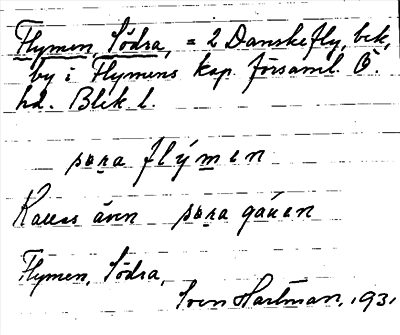 Flymen, Södra, = 2 Danskefly, bek,
by i Flymens kap. församl. Ö.
hd. Blek. l.
søra flýmen
Kallas även søra gáen
Flymen, Södra,
Sven Hartman, 193